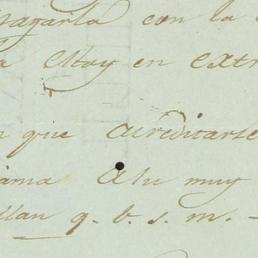 pagarla con la
a Estoy en extr
n que acreditarse
ama A su muy
llan q. b. s. m. -